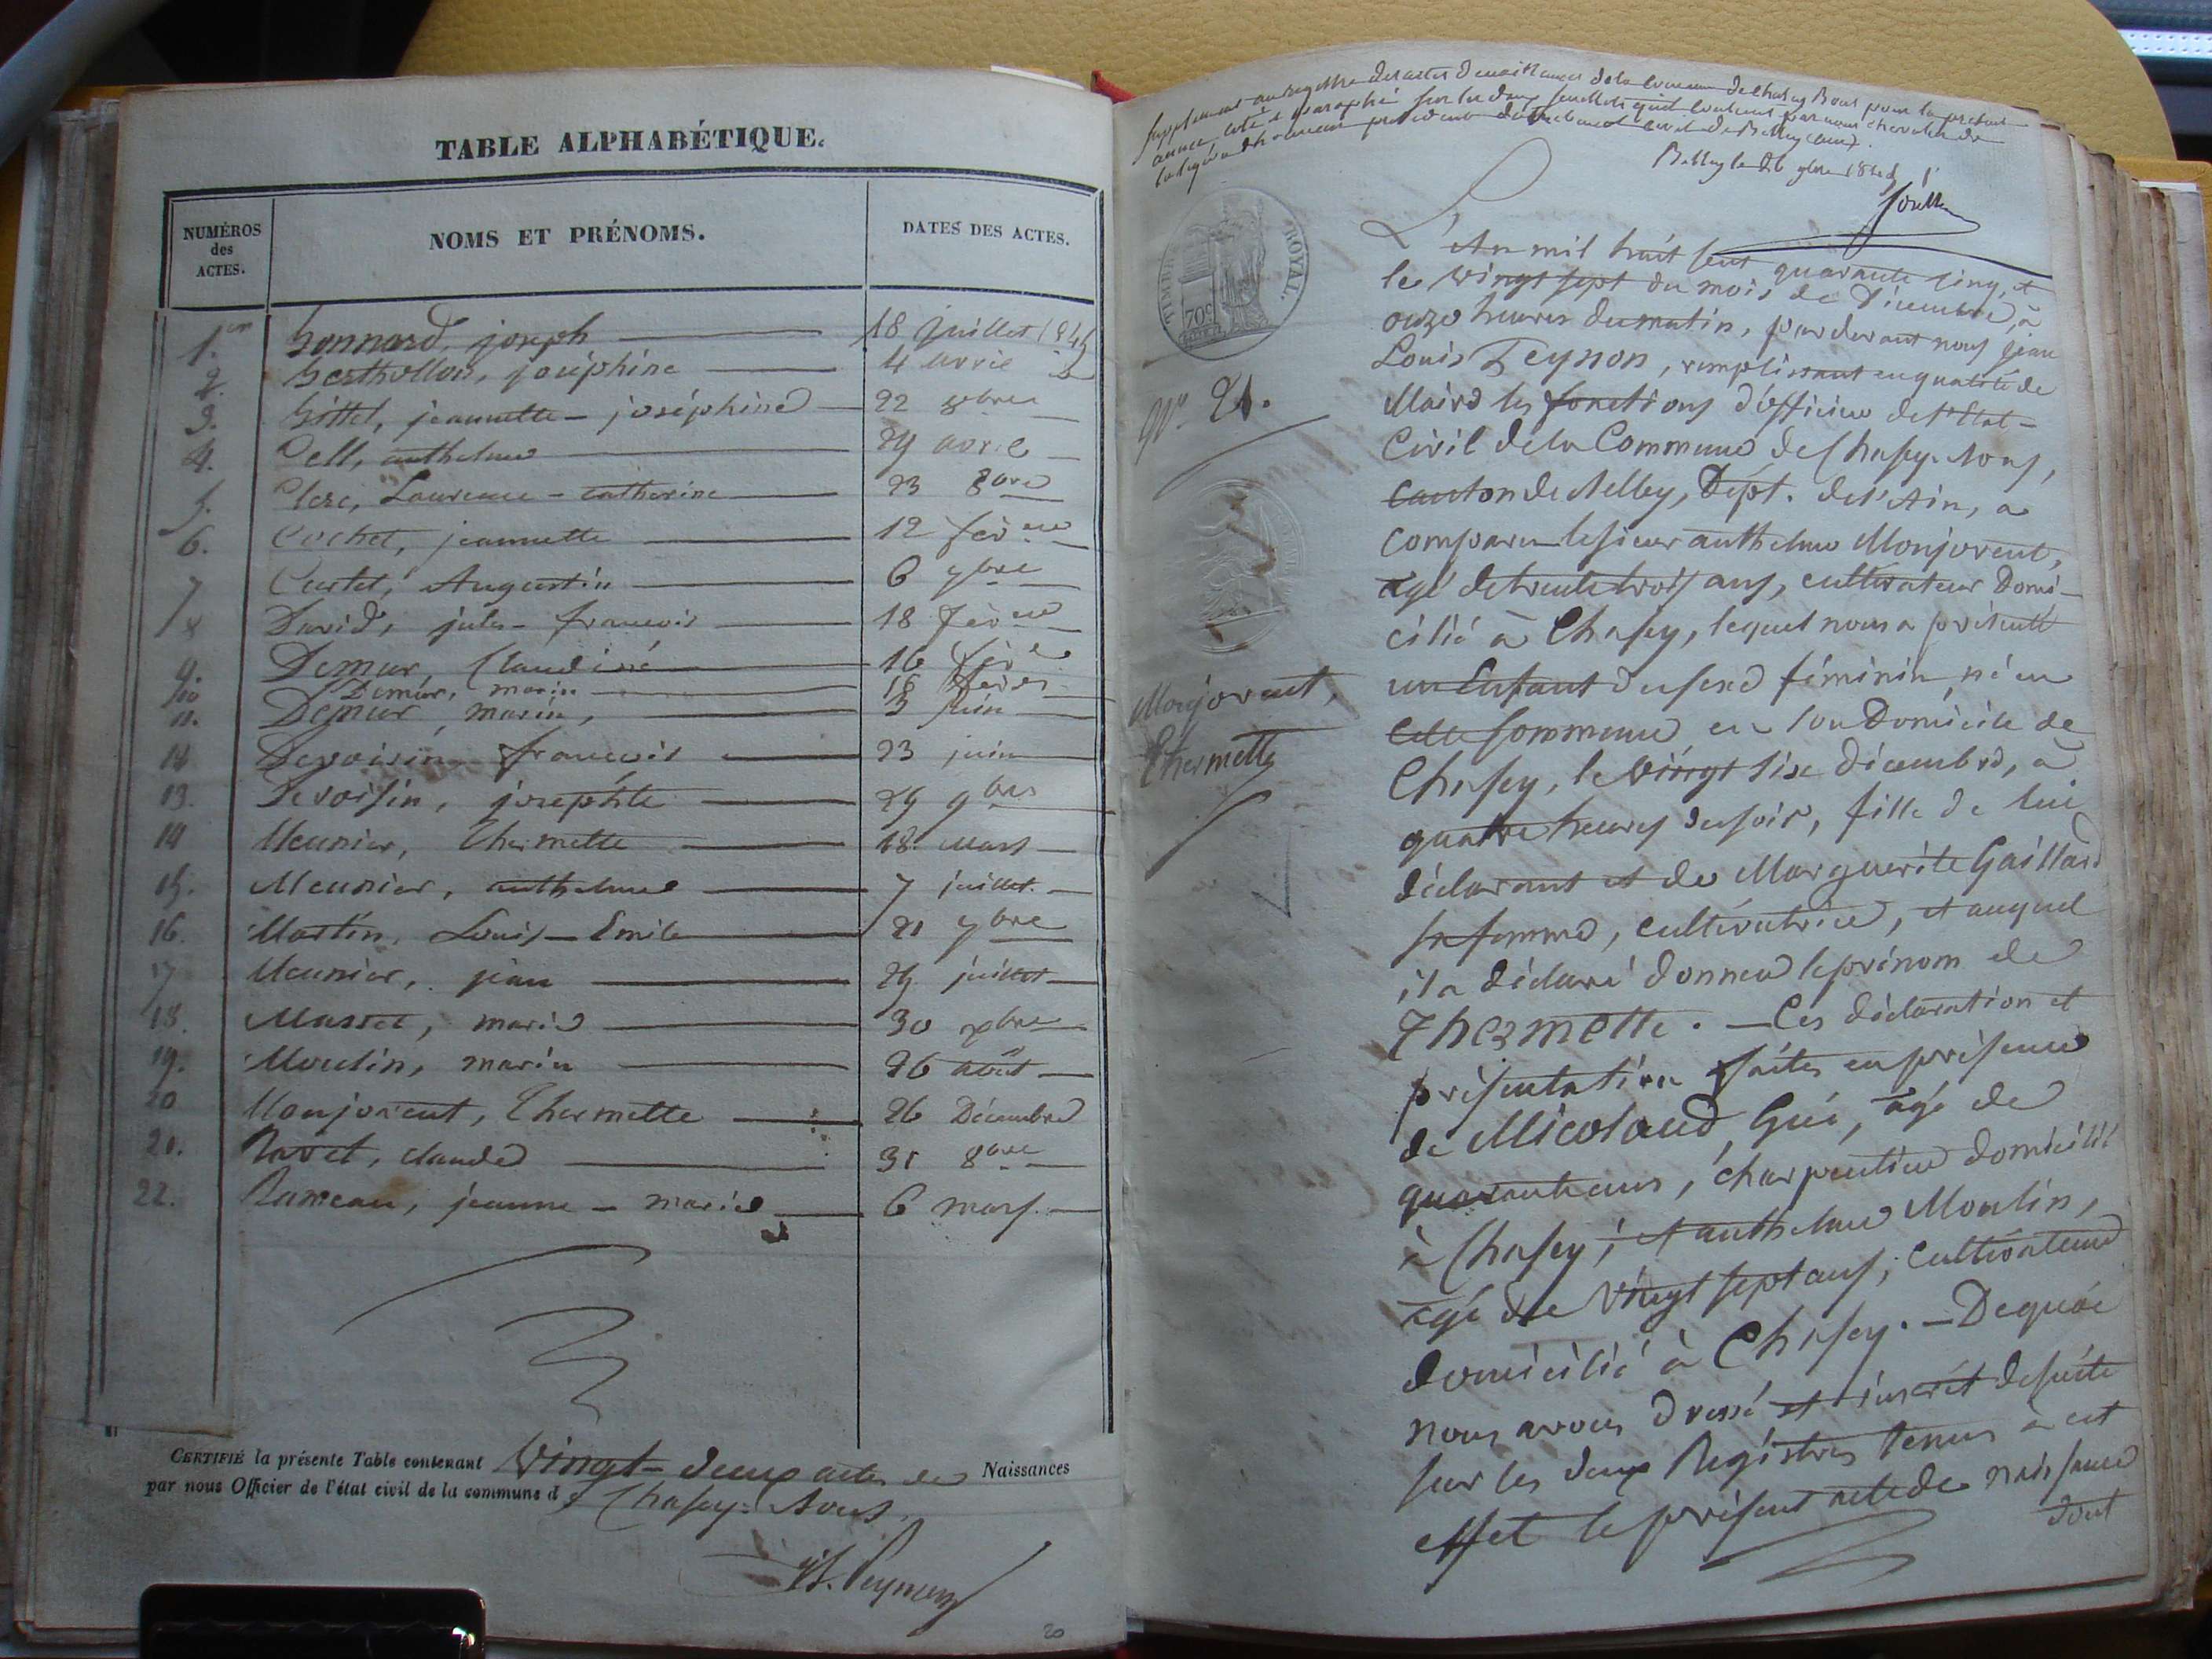 TABLE ALPHABÉTIQUE.
NUMÉROS des ACTES.
NOMS ET PRÉNOMS.
DATES DES ACTES.
1.er Bonnard, joseph 18 juillet 1845
2. Berthollon, joséphine 4 avril
3. Bittel, jeannette - joséphine 22 8bre
4. Cell, anthelme 29 avril
5. Clerc, Laurence - catherine 23 8bre
6. Cochet, jeannette 12
7 Curtet, Augustin 6 7bre
8 David, jules - francois 18
9. Demur, Claudine 16
10 Demur, marie 18
11. Demur, marie, 3 juin
12 Devoisin francois 23 juin
13. Devoisin, josephte 29 9bre
14 Meunier, Thermette 18 Mars
15. Meunier, anthelme 7 juillet
16. Martin, Louis - Emile 21 7bre
17 Meunier, jean 29 juillet
18. Masset, marie 30
19. Moulin, marie 26 août
20 Monjovent, Thermette 26 Décembre
21. Ravet, claude 31 8bre
22. Rameau, jeanne - marie 6 mars
CERTIFIÉ la présente Table contenant Vingt-deux actes de Naissances
par nous Officier de l'état civil de la commune de Chasey-Bons.
JL. Peysson
20
Supplément au registre des actes de naissances de la commune de Chazey Bons pour la présente
année, coté & paraphé sur les deux feuillets qu'il contient par nous chevalier de
la légion d'honneur président du tribunal civil de Belley (ain).
Belley le 26 1845
TIMBRE ROYAL.
70c
L'An mil huit cent quarante cinq, et
le vingt sept du mois de Décembre, à
onze heures du matin, pardevant nous jean
Louis Peysson, remplissant en qualité de
Maire les fonctions d'officier de l'Etat-
Civil de la Commune de Chasey-Bons,
canton de Belley, Dépt. de l'Ain, a
comparu le sieur anthelme Monjovent,
agé de trente trois ans, cultivateur Domi-
cilié à Chasey, lequel nous a présenté
un Enfant du sexe féminin, né en
cette Commune en son Domicile de
Chasey, le Vingt six Décembre, à
quatre heures du soir, fille de lui
déclarant et de Marguerite Gaillard
sa femme, cultivatrice, et auquel
il a déclaré donner le prénom de
Thermette. — Ces déclaration et
présentation faites en présence
de Micoloud, Gui, âgé de
quarante ans, charpentier domicilié
à Chasey; et anthelme Moulin,
agé de Vingt sept ans, cultivateur
domicilié à Chasey. — De quoi
nous avons dressé et inscrit de suite
sur les deux Registres tenus à cet
effet le présent acte de naissance
dont
N.o 21.
Monjovent,
Thermette